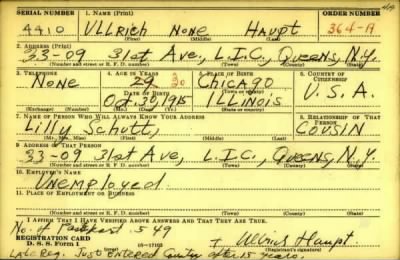 SERIAL NUMBER 1. NAME (Print) ORDER NUMBER
4410 Ullrich None Haupt 364-A
(First) (Middle) (Last)
2. ADDRESS (Print)
33-09 31st Ave., L.I.C., Queens, N.Y.
(Number and street or R. F. D. number) (Town) (County) (State)
3. TELEPHONE 4. AGE IN YEARS 5. PLACE OF BIRTH 6. COUNTRY OF CITIZENSHIP
None 29 Chicago
DATE OF BIRTH (Town or county)
Oct. 30, 1915 Illinois U.S.A.
(Exchange) (Number) (Mo.) (Day) (Yr.) (State or country)
7. NAME OF PERSON WHO WILL ALWAYS KNOW YOUR ADDRESS 8. RELATIONSHIP OF THAT PERSON
Lilly Schutt, Cousin
(Mr., Mrs., Miss) (First) (Middle) (Last)
9. ADDRESS OF THAT PERSON
33-09 31st Ave, L.I.C., Queens, N.Y.
(Number and street or R. F. D. number) (Town) (County) (State)
10. EMPLOYER'S NAME
Unemployed
11. PLACE OF EMPLOYMENT OR BUSINESS
(Number and street or R. F. D. number) (Town) (County) (State)
I AFFIRM THAT I HAVE VERIFIED ABOVE ANSWERS AND THAT THEY ARE TRUE.
No. of Passport 549
REGISTRATION CARD
D. S. S. Form 1 16-17105 Ullrich Haupt
(Registrant's signature)
Late Reg. Just Entered Country after 15 years.